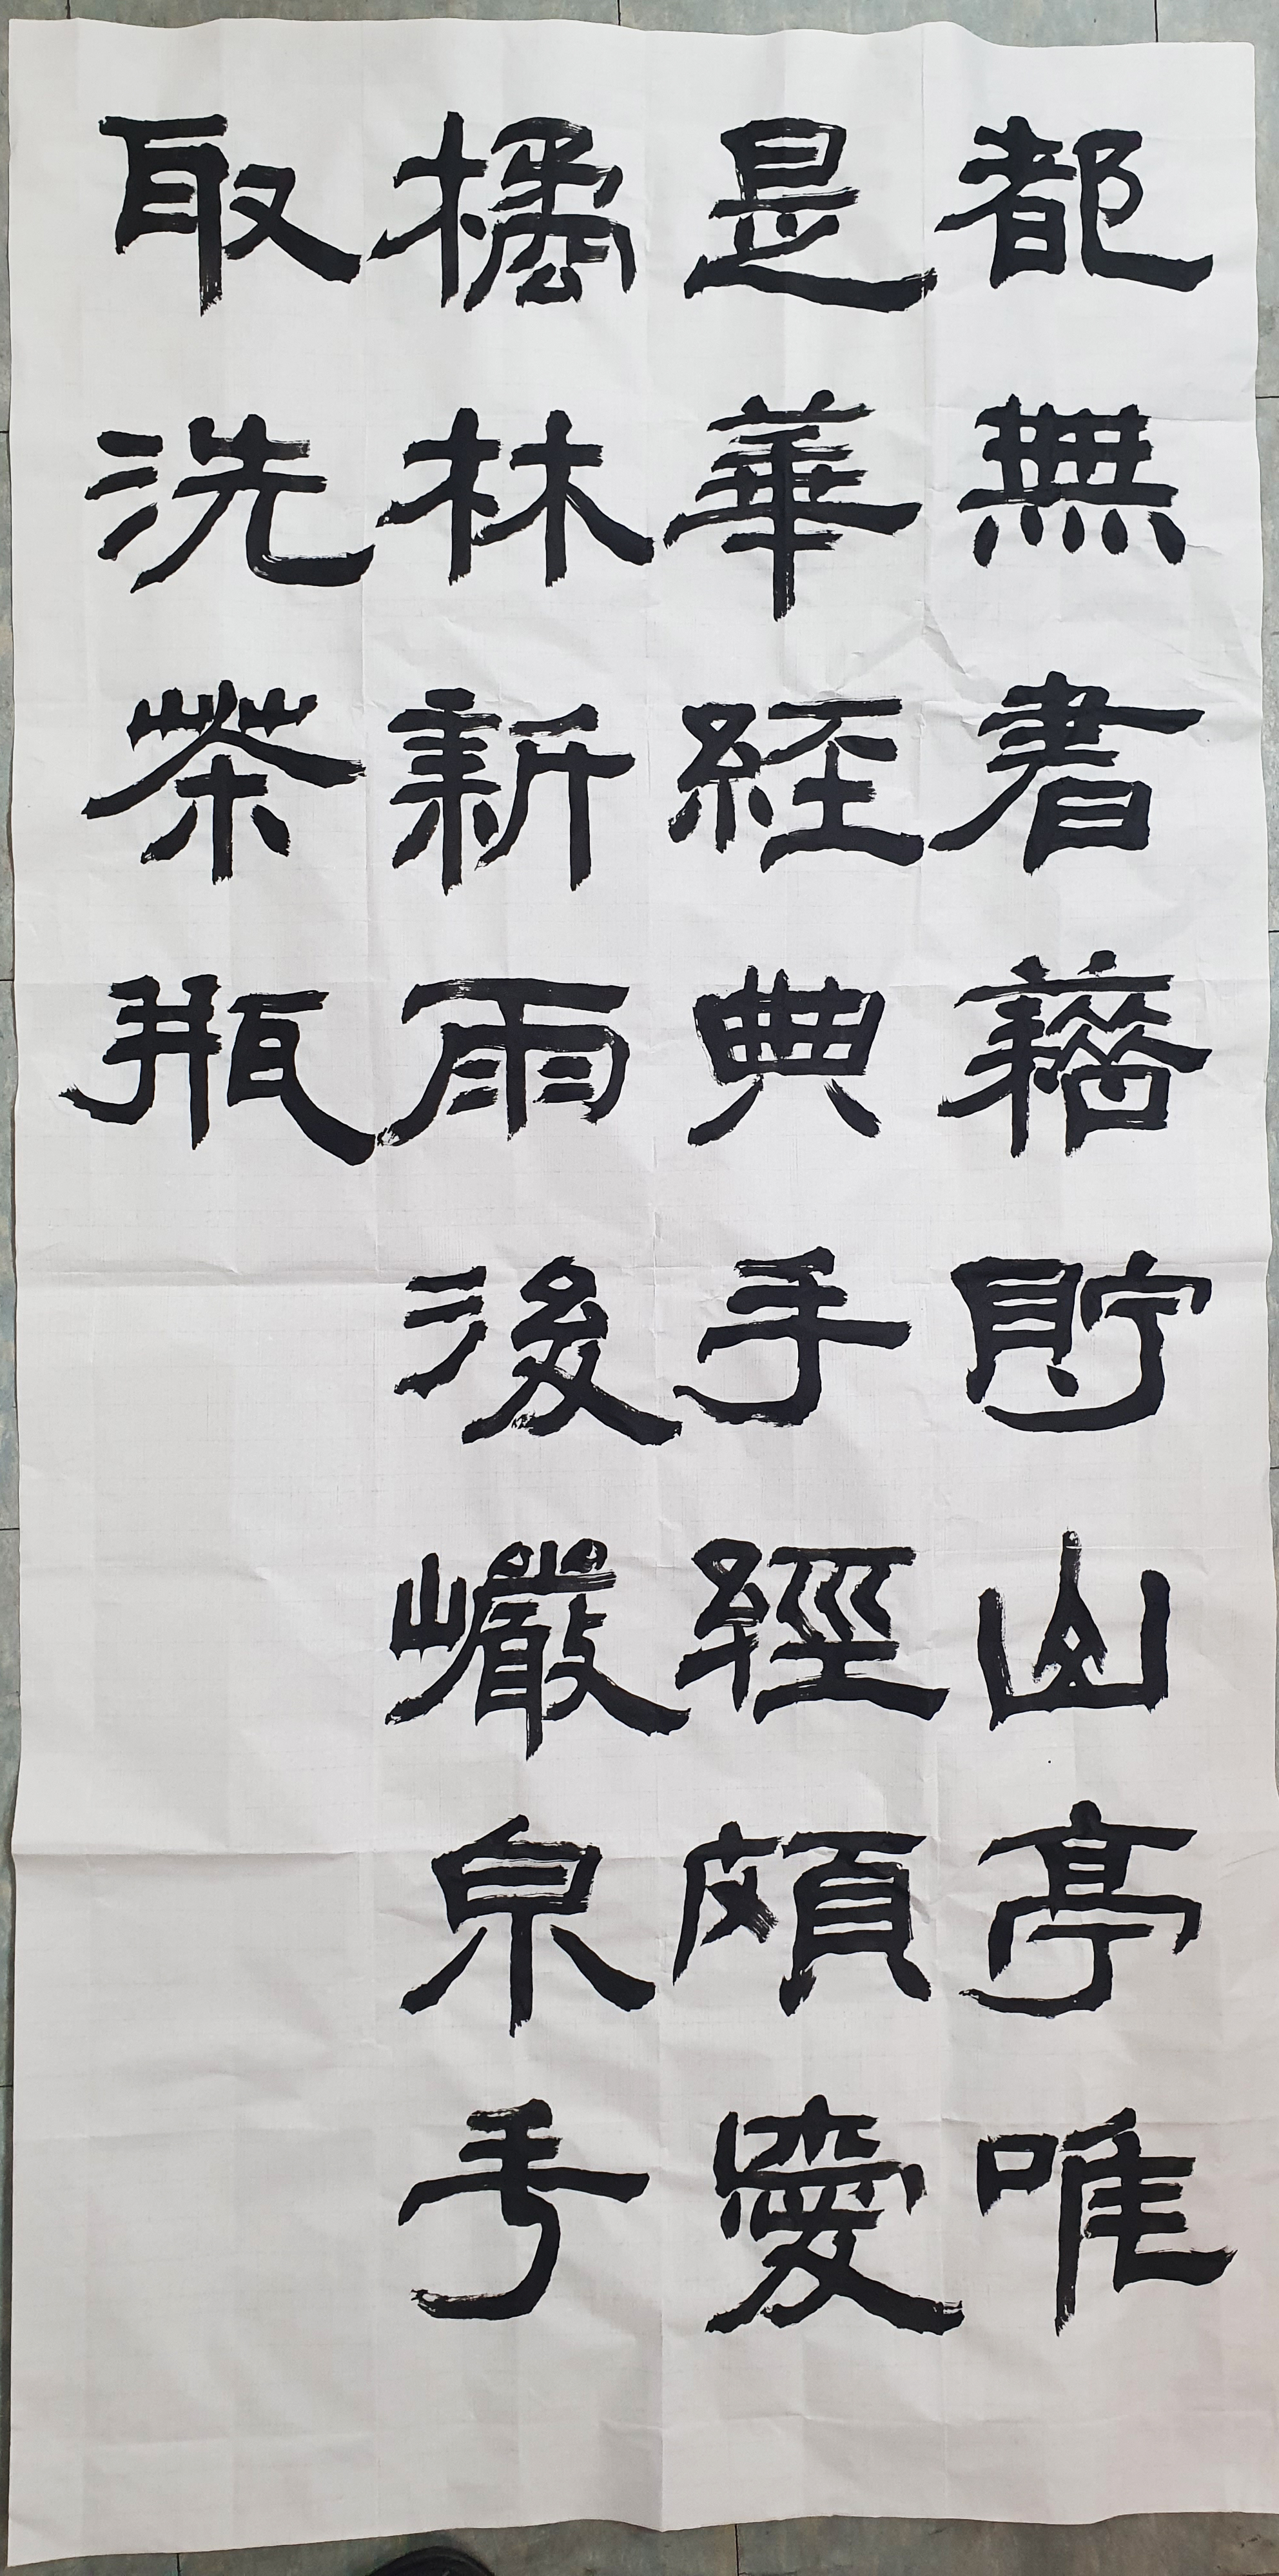 都無書籍貯山亭唯
是華經典手經頗愛
橘林新雨後巖泉手
取洗茶瓶